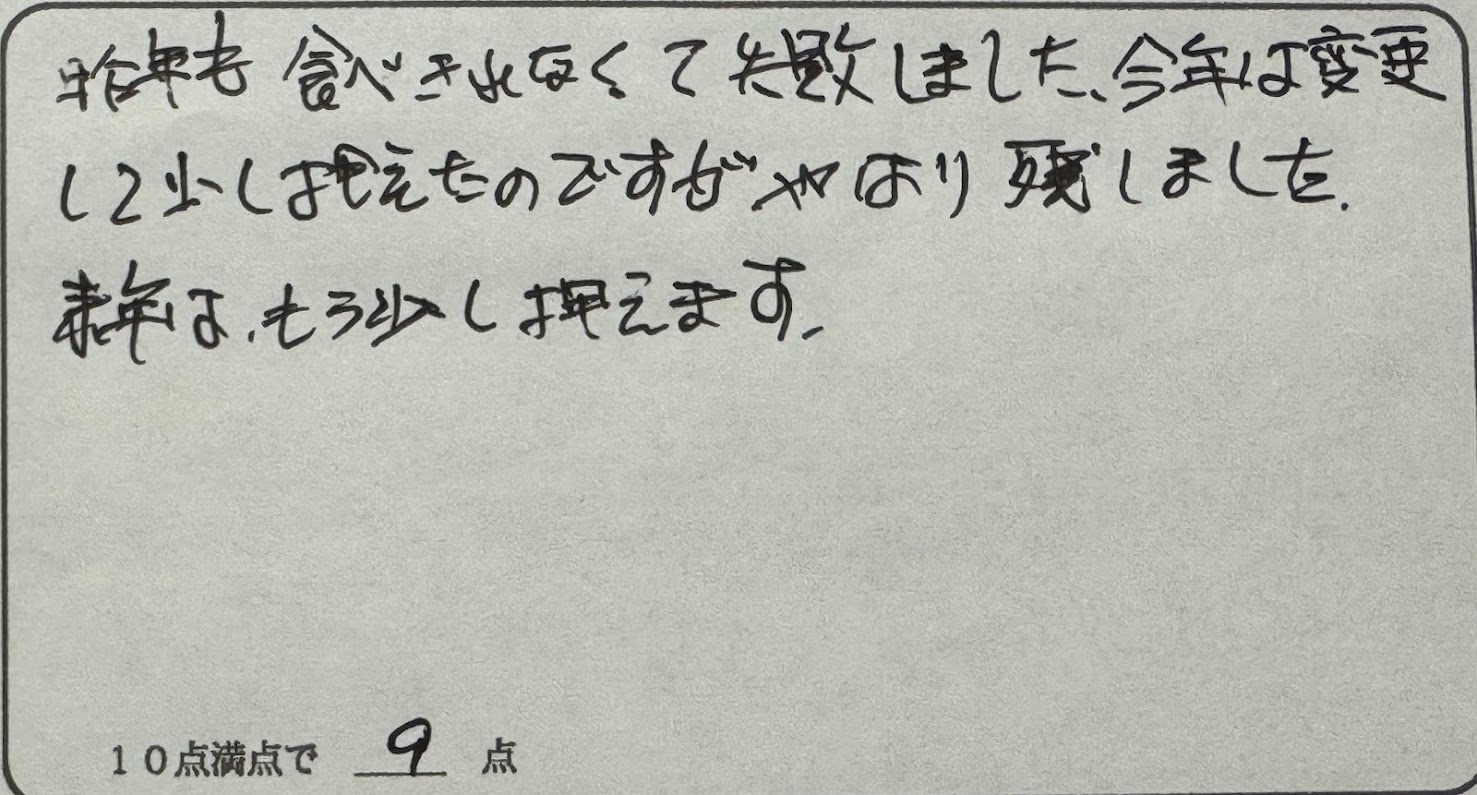 昨年も食べきれなくて失敗しました、今年は変更
して少しは押えたのですがやはり残しました。
来年は、もう少し押えます。
10点満点で 9 点